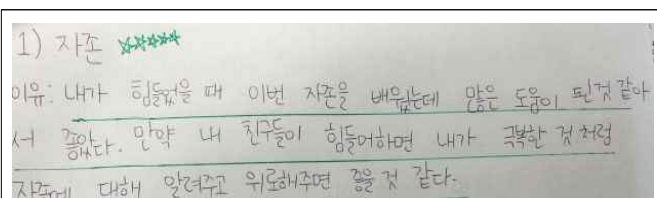 1) 자존 ☆☆☆☆☆
이유: 내가 힘들었을 때 이번 자존을 배웠는데 많은 도움이 된것 같아
서 좋았다. 만약 내 친구들이 힘들어하면 내가 극복한 것처럼
자존에 대해 알려주고 위로해주면 좋을 것 같다.